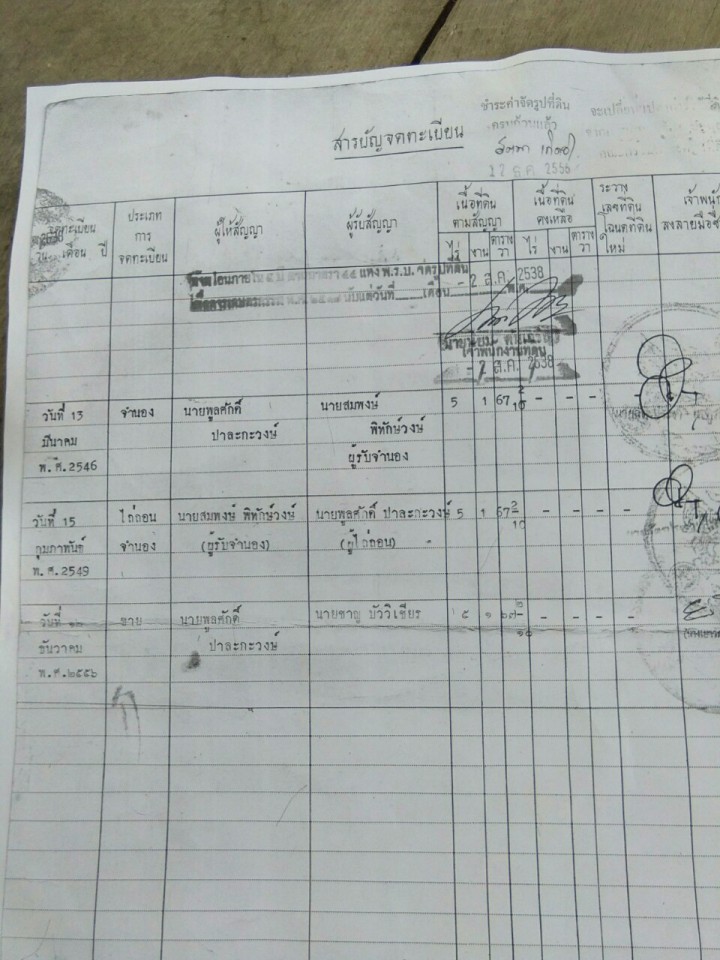 ชำระค่าจัดรูปที่ดิน
ครบถ้วนแล้ว
12 ธ.ค. 2556
สารบัญจดทะเบียน
จดทะเบียน
วัน เดือน ปี
ประเภท
การ
จดทะเบียน
ผู้ให้สัญญา
ผู้รับสัญญา
เนื้อที่ดิน
ตามสัญญา
ไร่ งาน ตาราง
วา
เนื้อที่ดิน
คงเหลือ
ไร่ งาน ตาราง
วา
ระวาง
เลขที่ดิน
โฉนดที่ดิน
ใหม่
เจ้าพนัก
ลงลายมือชื่อ
โอนภายใน ๕ ปี ตามมาตรา ๔๔ แห่ง พ.ร.บ. จัดรูปที่ดิน
นับแต่วันที่ เดือน พ.ศ.
- 2 ส.ค. 2538
เจ้าพนักงานที่ดิน
- 2 ส.ค. 2538
วันที่ 13 จำนอง นายพูลศักดิ์ นายสมพงษ์ 5 1 67 2/10 - - - - -
มีนาคม ปาละกะวงษ์ พิทักษ์วงษ์
พ.ศ.2546 ผู้รับจำนอง
วันที่ 15 ไถ่ถอน นายสมพงษ์ พิทักษ์วงษ์ นายพูลศักดิ์ ปาละกะวงษ์ 5 1 67 2/10 - - - - -
กุมภาพันธ์ จำนอง (ผู้รับจำนอง) (ผู้ไถ่ถอน)
พ.ศ.2549
วันที่ ๑๒ ขาย นายพูลศักดิ์ นายชาญ บัววิเชียร ๕ ๑ ๖๗ ๒/๑๐ - - - - -
ธันวาคม ปาละกะวงษ์
พ.ศ.๒๕๕๖